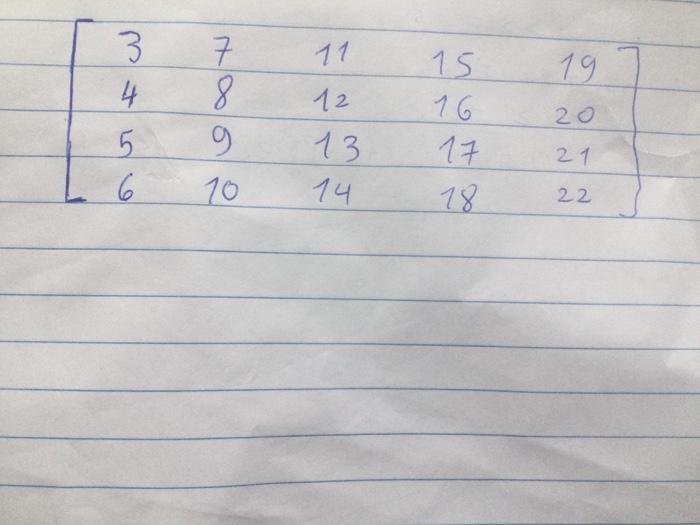 3 7 11 15 19
4 8 12 16 20
5 9 13 17 21
6 10 14 18 22